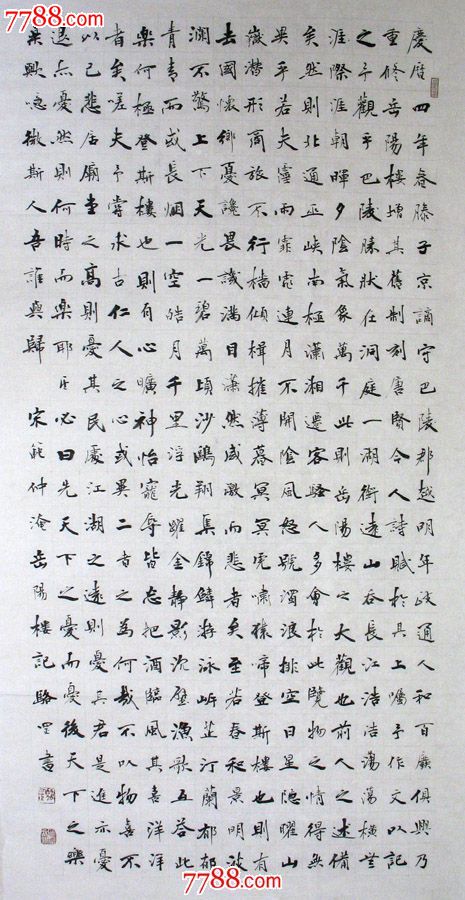 7788.com
慶曆四年春滕子京謫守巴陵郡越明年政通人和百廢俱興乃
重修岳陽樓增其舊制刻唐賢今人詩賦於其上囑予作文以記
之予觀乎巴陵勝狀在洞庭一湖銜遠山吞長江浩浩蕩蕩橫無
涯際涯朝暉夕陰氣象萬千此則岳陽樓之大觀也前人之述備
矣然則北通巫峽南極瀟湘遷客騷人多會於此覽物之情得無
異乎若夫霪雨霏霏連月不開陰風怒號濁浪排空日星隱曜山
嶽潛形商旅不行檣傾楫摧薄暮冥冥虎嘯猿啼登斯樓也則有
去國懷鄉憂讒畏譏滿目蕭然感激而悲者矣至若春和景明波
瀾不驚上下天光一碧萬頃沙鷗翔集錦鱗游泳岸芷汀蘭郁郁
青青而或長烟一空皓月千里浮光躍金靜影沉璧漁歌互答此
樂何極登斯樓也則有心曠神怡寵辱皆忘把酒臨風其喜洋洋
者矣嗟夫予嘗求古仁人之心或異二者之為何哉不以物喜不
以己悲居廟堂之高則憂其民處江湖之遠則憂其君是進亦憂
退亦憂然則何時而樂耶其必曰先天下之憂而憂後天下之樂
樂歟噫微斯人吾誰與歸 宋範仲淹岳陽樓記 駱書
7788.com